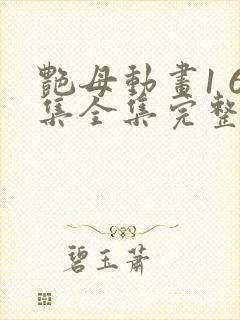 艷母動畫16
集全集完整
碧玉蕭